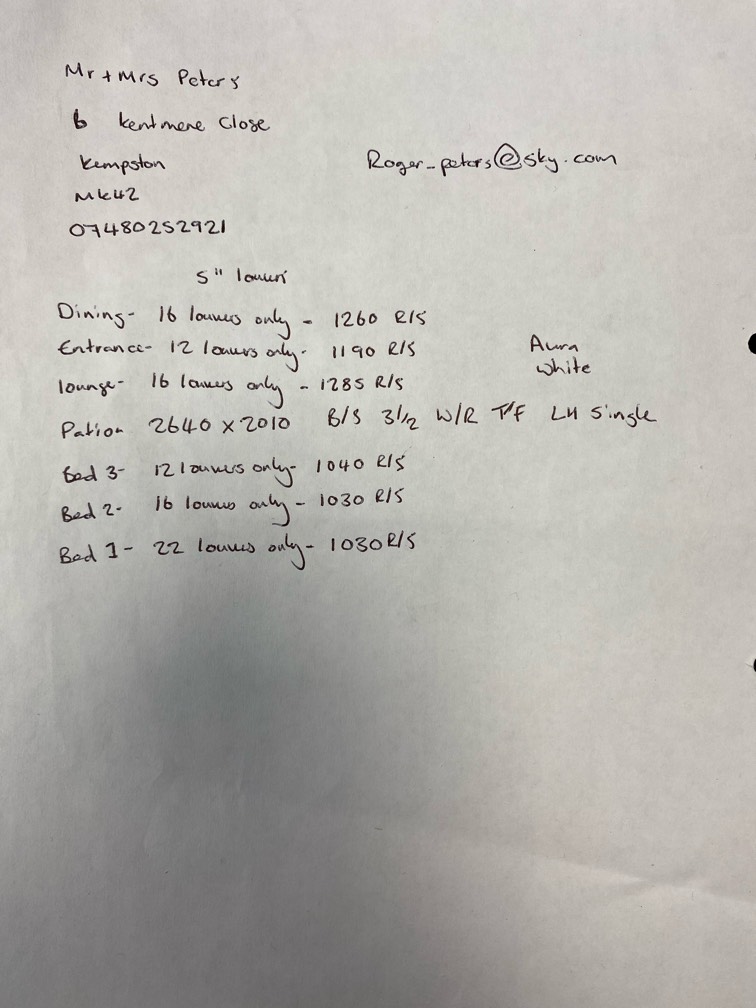 Mr + Mrs Peters
6 Kentmere Close
Kempston
Roger_peters@sky.com
MK42
07480252921
5" louvers
Dining - 16 louvers only - 1260 R/S
Entrance - 12 louvers only - 1190 R/S
Aura
white
lounge - 16 louvers only - 1285 R/S
Pation 2640 x 2010 B/S 3 1/2 W/R T/F LH Single
Bed 3 - 12 louvers only - 1040 R/S
Bed 2 - 16 louvers only - 1030 R/S
Bed 1 - 22 louvers only - 1030 R/S